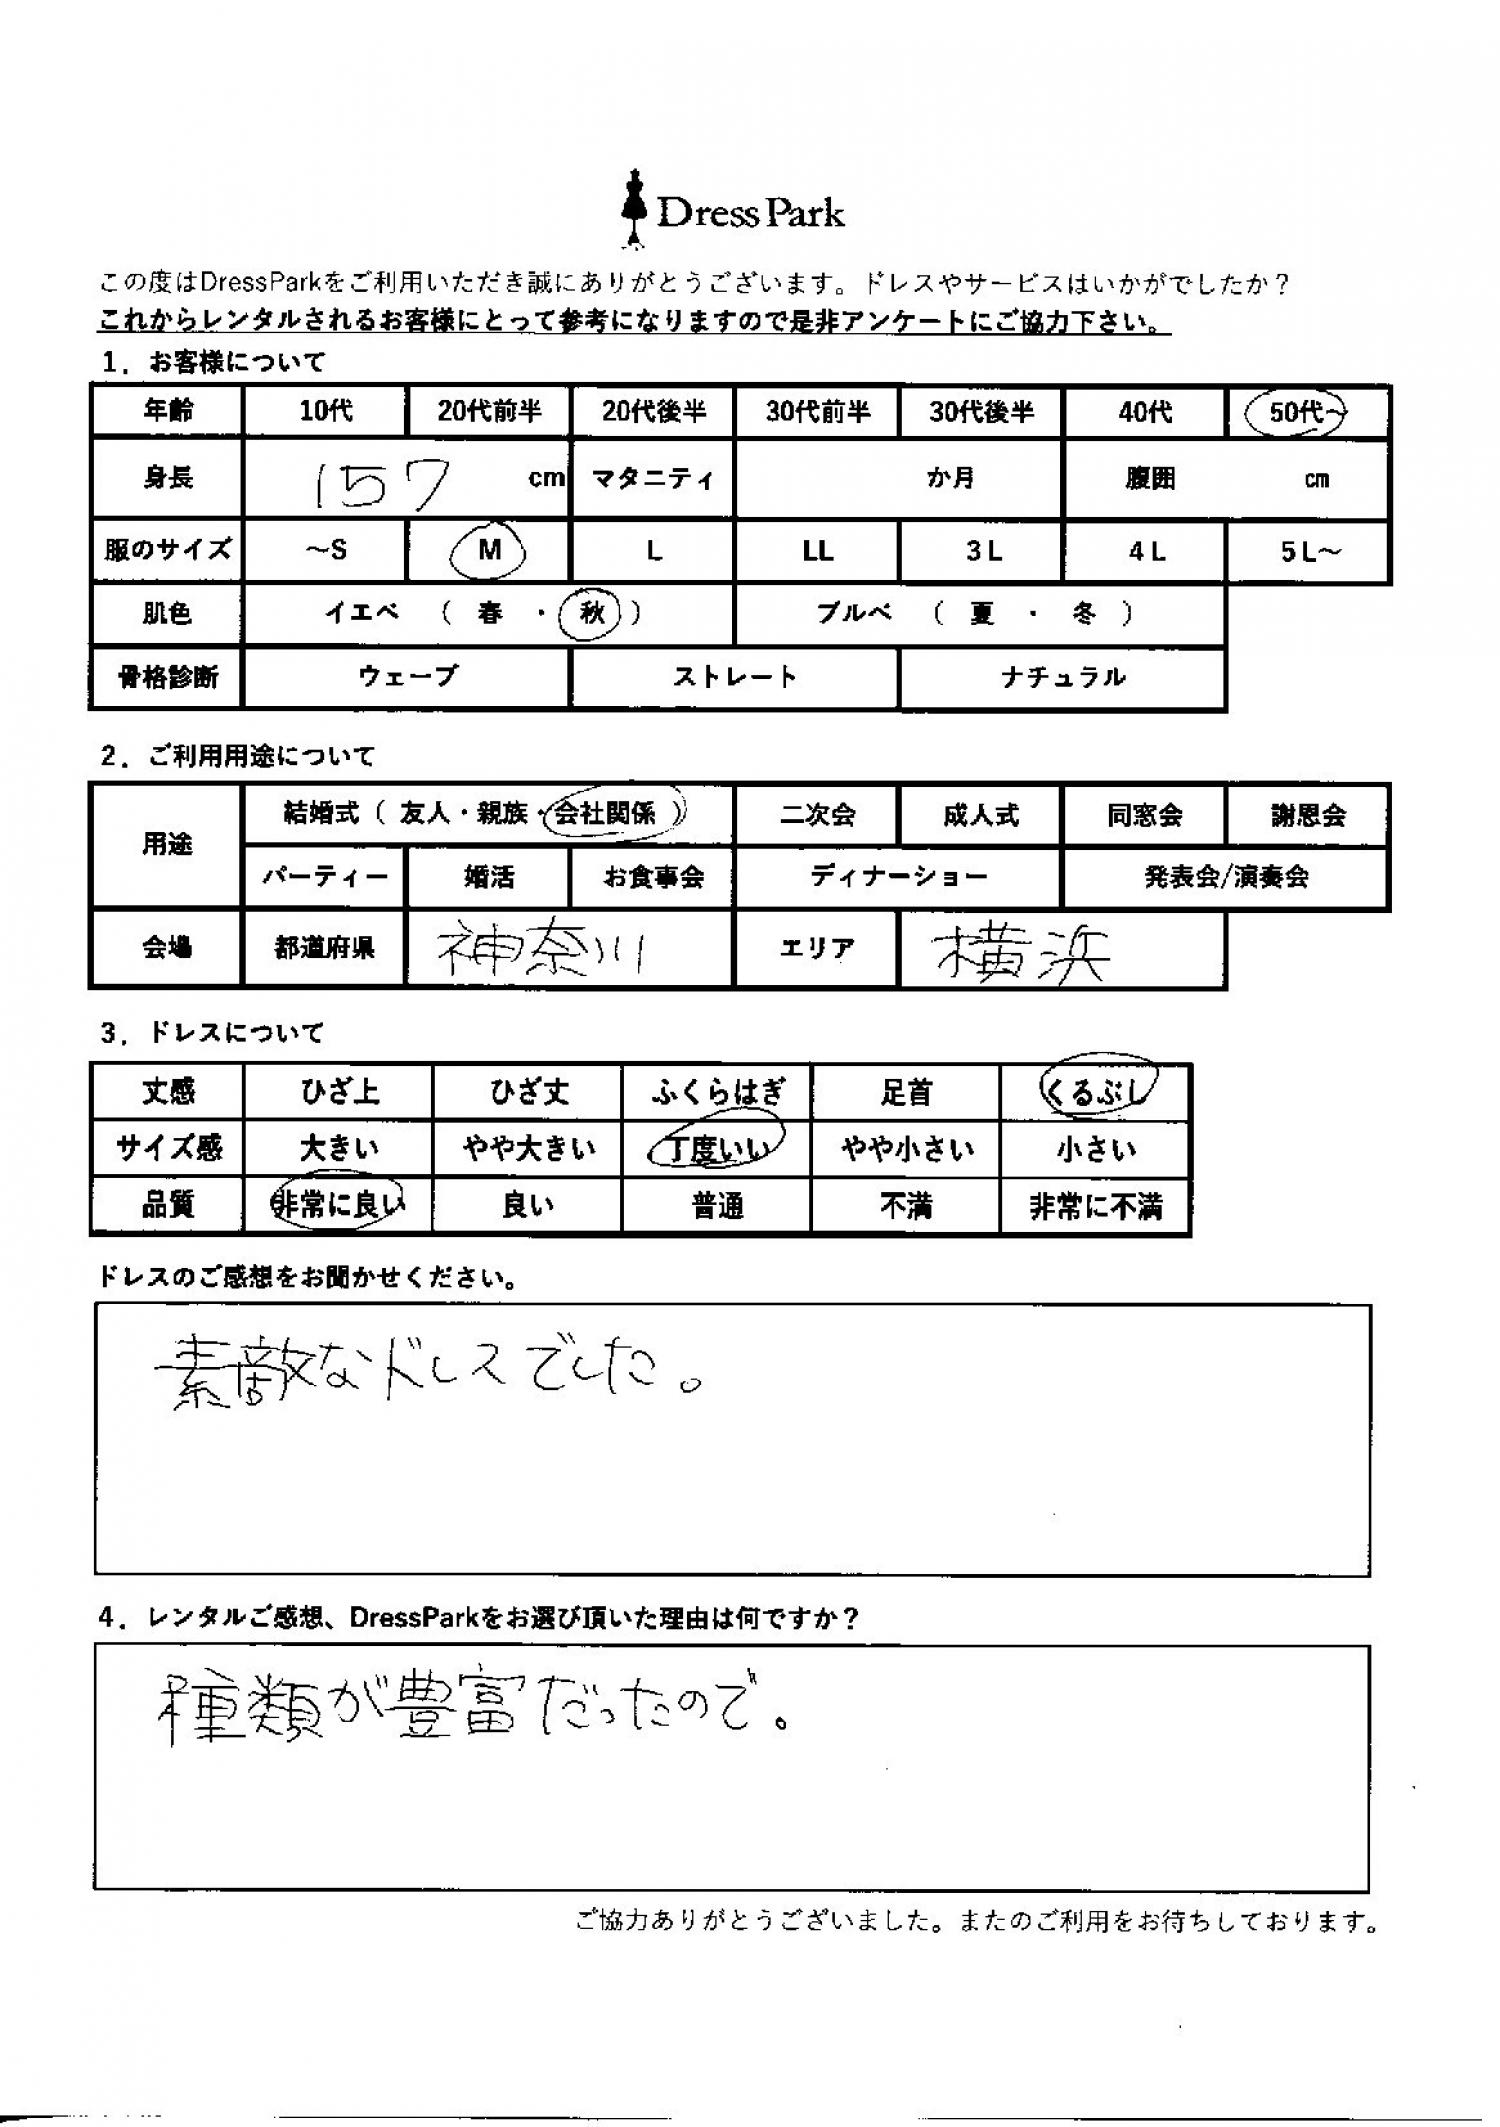 Dress Park
この度はDressParkをご利用いただき誠にありがとうございます。ドレスやサービスはいかがでしたか？
これからレンタルされるお客様にとって参考になりますので是非アンケートにご協力下さい。
1．お客様について
年齢 10代 20代前半 20代後半 30代前半 30代後半 40代 50代～
身長 157 cm マタニティ か月 腹囲 cm
服のサイズ ～S M L LL 3L 4L 5L～
肌色 イエベ （ 春 ・ 秋 ） ブルベ （ 夏 ・ 冬 ）
骨格診断 ウェーブ ストレート ナチュラル
2．ご利用用途について
用途 結婚式（ 友人・親族・会社関係 ） 二次会 成人式 同窓会 謝恩会
パーティー 婚活 お食事会 ディナーショー 発表会/演奏会
会場 都道府県 神奈川 エリア 横浜
3．ドレスについて
丈感 ひざ上 ひざ丈 ふくらはぎ 足首 くるぶし
サイズ感 大きい やや大きい 丁度いい やや小さい 小さい
品質 非常に良い 良い 普通 不満 非常に不満
ドレスのご感想をお聞かせください。
素敵なドレスでした。
4．レンタルご感想、DressParkをお選び頂いた理由は何ですか？
種類が豊富だったので。
ご協力ありがとうございました。またのご利用をお待ちしております。